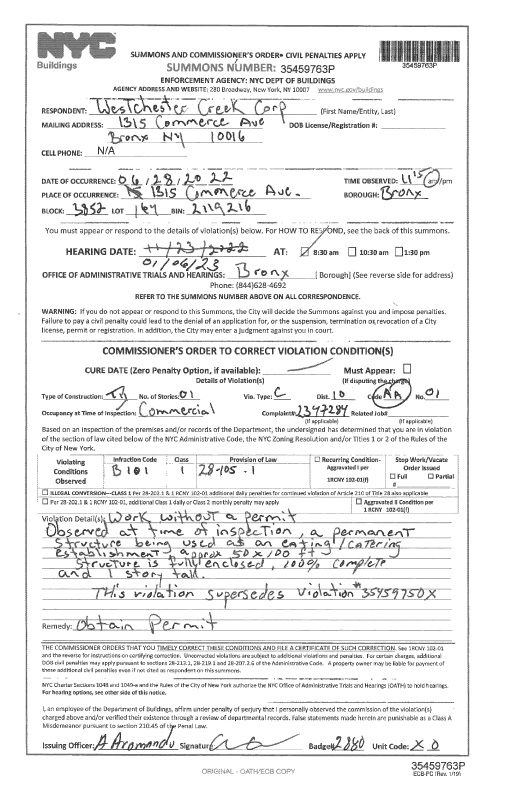 NYC
Buildings
SUMMONS AND COMMISSIONER'S ORDER• CIVIL PENALTIES APPLY
SUMMONS NUMBER: 35459763P
35459763P
ENFORCEMENT AGENCY: NYC DEPT OF BUILDINGS
AGENCY ADDRESS AND WEBSITE: 280 Broadway, New York, NY 10007 www.nyc.gov/buildings
RESPONDENT: Westchester Creek Corp (First Name/Entity, Last)
MAILING ADDRESS: 1315 Commerce Ave DOB License/Registration #:
Bronx NY 10016
CELL PHONE: N/A
DATE OF OCCURRENCE: 06/28/2022 TIME OBSERVED: 11:15 am/pm
PLACE OF OCCURRENCE: 1315 Commerce Ave. BOROUGH: Bronx
BLOCK: 3852 LOT BIN: 2119216
You must appear or respond to the details of violation(s) below. For HOW TO RESPOND, see the back of this summons.
HEARING DATE: 11/23/2022 AT: 8:30 am 10:30 am 1:30 pm
01/06/23
OFFICE OF ADMINISTRATIVE TRIALS AND HEARINGS: Bronx (Borough) (See reverse side for address)
Phone: (844)628-4692
REFER TO THE SUMMONS NUMBER ABOVE ON ALL CORRESPONDENCE.
WARNING: If you do not appear or respond to this Summons, the City will decide the Summons against you and impose penalties.
Failure to pay a civil penalty could lead to the denial of an application for, or the suspension, termination or revocation of a City
license, permit or registration. In addition, the City may enter a judgment against you in court.
COMMISSIONER'S ORDER TO CORRECT VIOLATION CONDITION(S)
CURE DATE (Zero Penalty Option, if available): Must Appear:
Details of Violation(s) (If disputing the charge)
Type of Construction: No. of Stories: 01 Vio. Type: C Dist. 10 Code AA No. 01
Occupancy at Time of Inspection: Commercial Complaint# 2347284 Related Job#
(If applicable) (If applicable)
Based on an inspection of the premises and/or records of the Department, the undersigned has determined that you are in violation
of the section of law cited below of the NYC Administrative Code, the NYC Zoning Resolution and/or Titles 1 or 2 of the Rules of the
City of New York.
Violating Conditions Observed Infraction Code Class Provision of Law Recurring Condition- Aggravated I per 1RCNY 102-01(f) Stop Work/Vacate Order Issued
B101 1 28-105.1 Full Partial
#
ILLEGAL CONVERSION—CLASS 1 Per 28-202.1 & 1 RCNY 102-01 additional daily penalties for continued violation of Article 210 of Title 28 also applicable
Per 28-202.1 & 1 RCNY 102-01 additional Class 1 daily or Class 2 monthly penalty may apply Aggravated II Condition per 1 RCNY 102-01(f)
Violation Detail(s): Work without a permit
Observed at time of inspection, a permanent
structure being used as an eating/catering
establishment, approx 50x100 ft
structure is fully enclosed, 100% complete
and 1 story tall.
This violation supersedes violation # 35459750X
Remedy: Obtain Permit
THE COMMISSIONER ORDERS THAT YOU TIMELY CORRECT THESE CONDITIONS AND FILE A CERTIFICATE OF SUCH CORRECTION. See 1RCNY 102-01
and the reverse for instructions on certifying correction. Uncorrected violations are subject to additional violations and penalties. For certain charges, additional
DOB civil penalties may apply pursuant to sections 28-213.1, 28-219.1 and 28-207.2.6 of the Administrative Code. A property owner may be liable for payment of
these additional civil penalties even if not cited as respondent on this summons.
NYC Charter Sections 1048 and 1049-a and the Rules of the City of New York authorize the NYC Office of Administrative Trials and Hearings (OATH) to hold hearings.
For hearing options, see other side of this notice.
I, an employee of the Department of Buildings, affirm under penalty of perjury that I personally observed the commission of the violation(s)
charged above and/or verified their existence through a review of departmental records. False statements made herein are punishable as a Class A
Misdemeanor pursuant to section 210.45 of the Penal Law.
Issuing Officer: A Aromando Signature Badge# 2880 Unit Code: XO
35459763P
ORIGINAL - OATH/ECB COPY
ECB-PC (Rev. 1/19)